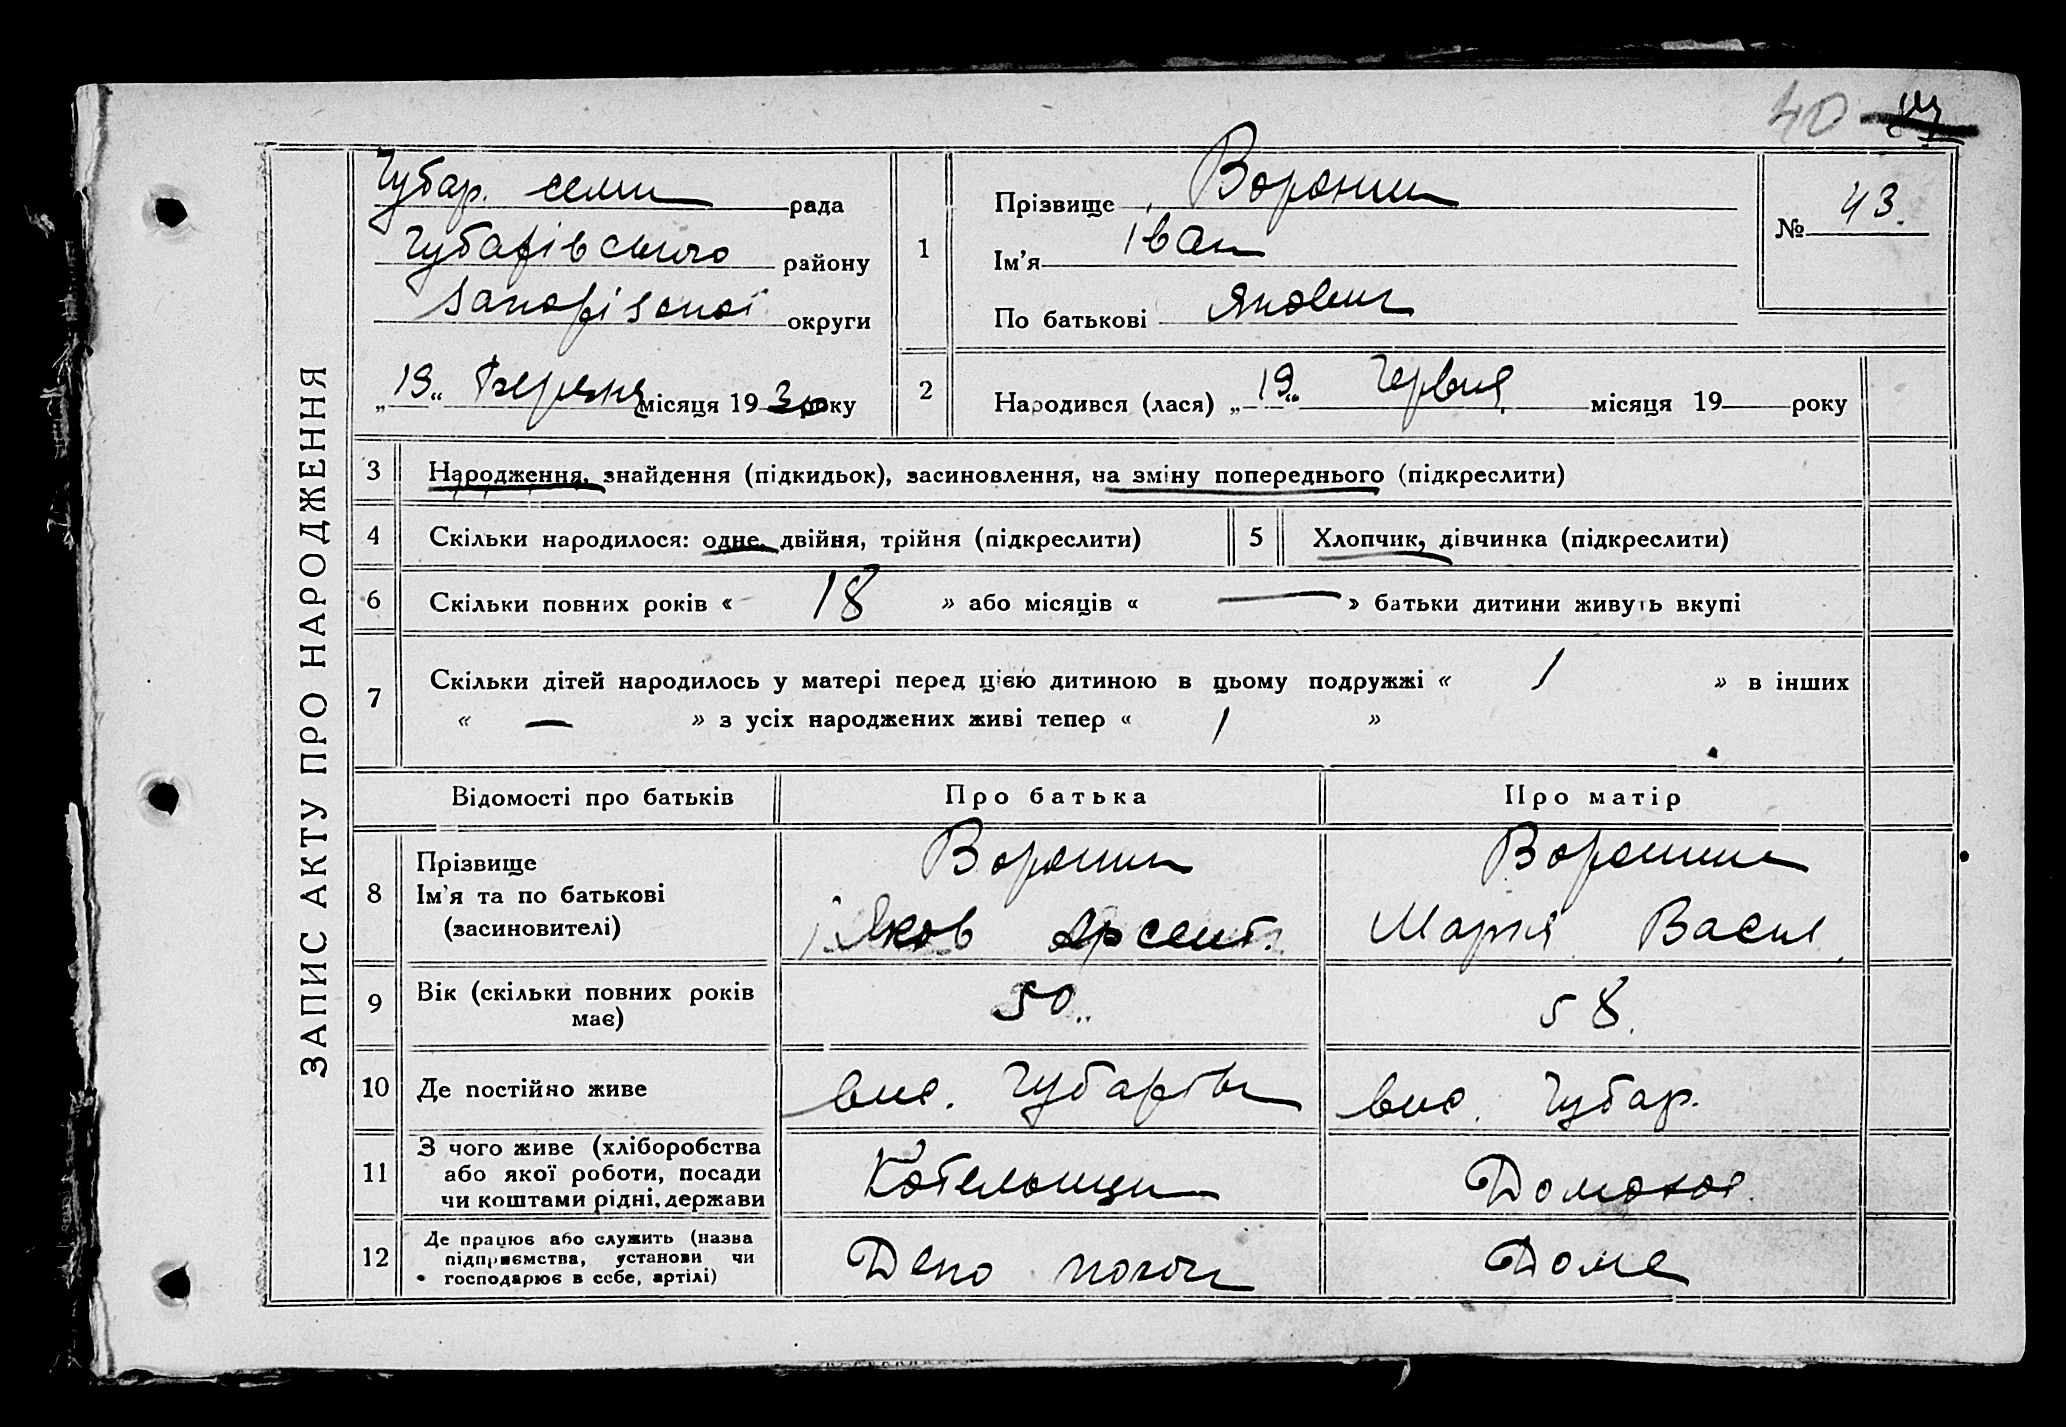 40
ЗАПИС АКТУ ПРО НАРОДЖЕННЯ
Чубар. селищ рада
Чубарівського району
Запорізької округи
„19“ Березня місяця 1930 року
1
Прізвище Воронин
Ім'я Іван
По батькові Якович
№ 43.
2
Народився (лася) „19“ Червня місяця 19 року
3 Народження, знайдення (підкидьок), засиновлення, на зміну попереднього (підкреслити)
4 Скільки народилося: одне, двійня, трійня (підкреслити)
5 Хлопчик, дівчинка (підкреслити)
6 Скільки повних років « 18 » або місяців « — » батьки дитини живуть вкупі
7 Скільки дітей народилось у матері перед цією дитиною в цьому подружжі « 1 » в інших
« — » з усіх народжених живі тепер « 1 »
Відомості про батьків Про батька Про матір
8
Прізвище Воронин Воронина
Ім'я та по батькові
(засиновителі) Яков Арсент. Мария Васил.
9 Вік (скільки повних років
має) 50 58.
10 Де постійно живе вис. Чубарівка вис. Чубар.
11 З чого живе (хліборобства
або якої роботи, посади
чи коштами рідні, держави Котельщик Домохоз.
12 Де працює або служить (назва
підприємства, установи чи
господарює в себе, артілі) Депо Дома